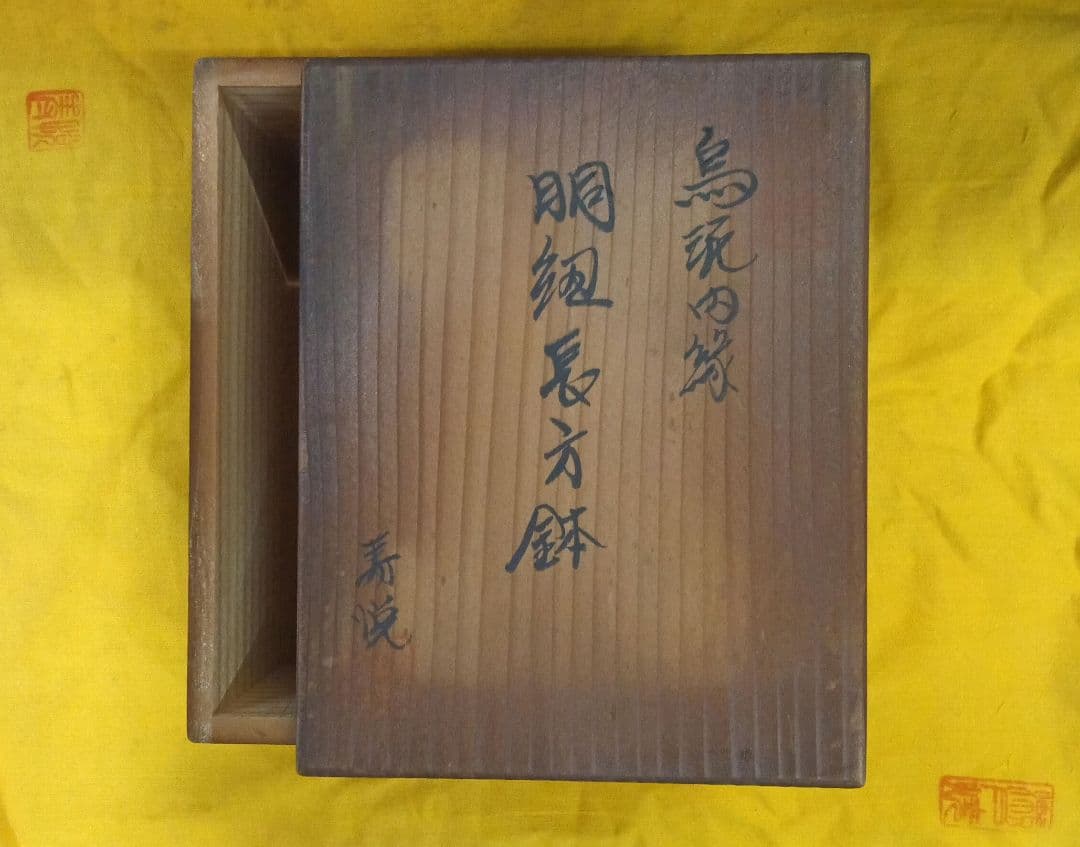 烏泥内縁
胴紐長方鉢
寿悦